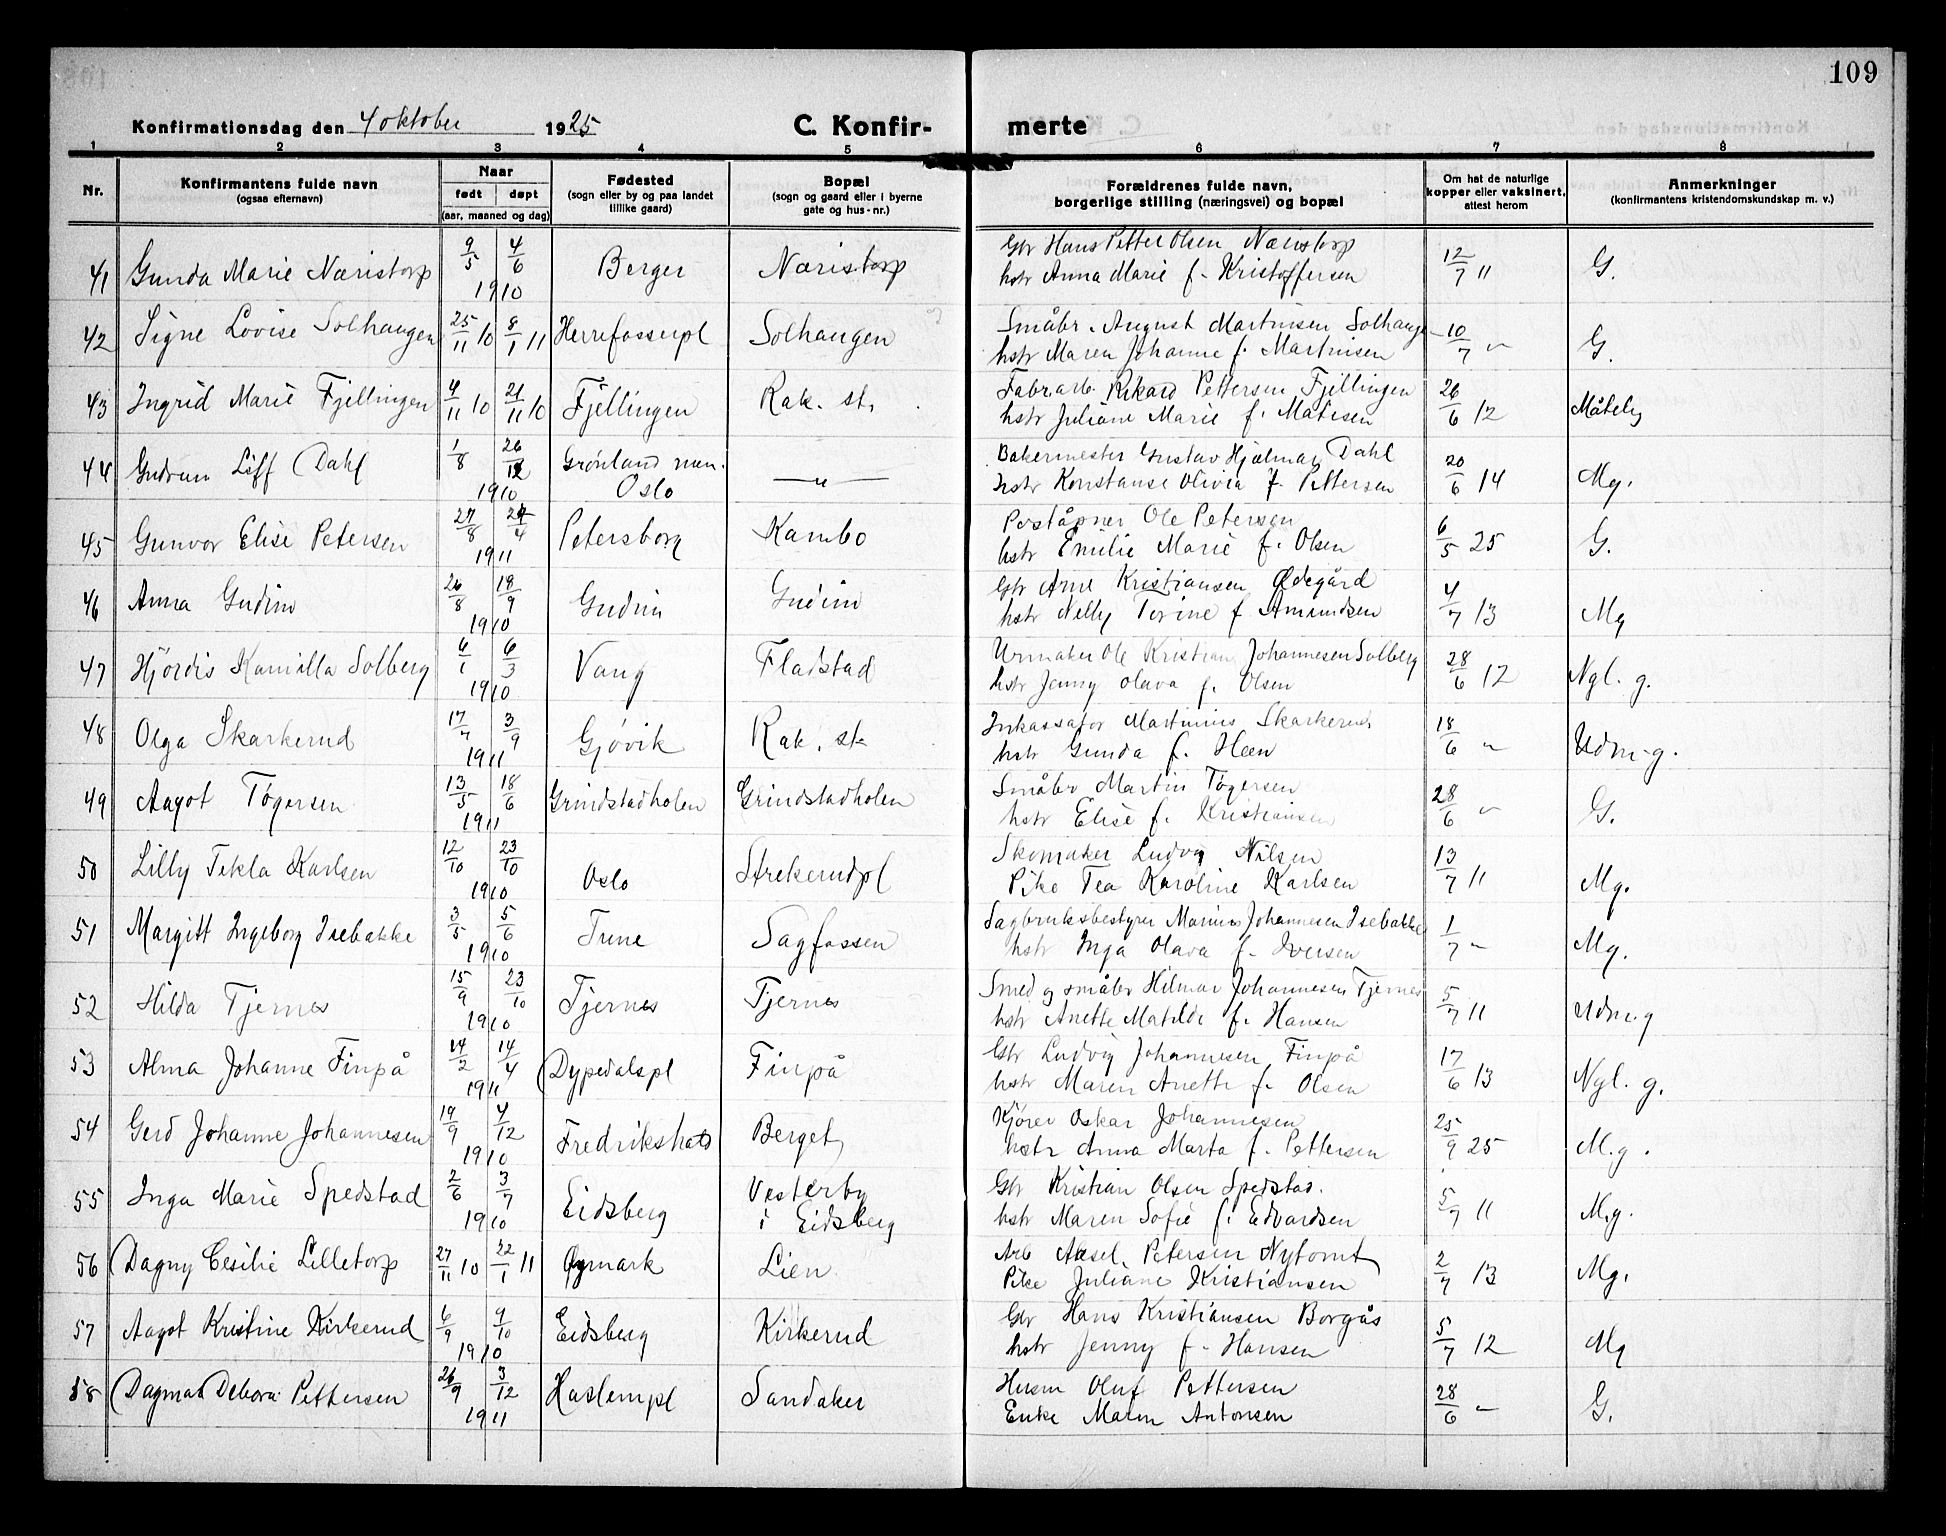 109
Konfirmationsdag den 4 oktober 1925 C. Konfir- merte
1 2 3 4 5 6 7 8
Nr. Konfirmantens fulde navn (ogsaa efternavn) Naar født døpt (aar, maaned og dag) Fødested (sogn eller by og paa landet tillike gaard) Bopæl (sogn og gaard eller i byerne gate og hus-nr.) Forældrenes fulde navn, borgerlige stilling (næringsvei) og bopæl Om hat de naturlige kopper eller vaksinert, attest herom Anmerkninger (konfirmantens kristendomskundskap m. v.)
41 Gunda Marie Næristorp 9/5 4/6 1910 Berger Næristorp Gbr Hans Petter Olsen Næristorp
hstr Anna Marie f. Kristoffersen 12/7 11 G.
42 Signe Lovise Solhaugen 25/11 10 8/1 11 Herrefosserpl Solhaugen Småbr. August Martinisen Solhauge
hstr Maren Johanne f. Martinisen 10/7 " G.
43 Ingrid Marie Fjellingen 4/11 10 21/11 10 Fjellingen Rak. st. Fabrarb. Rikard Pettersen Fjellingen
hstr Juliane Marie f. Matisen 26/6 12 Måtelig
44 Gudrun Liff Dahl 1/8 26/12 1910 Grønland men. Oslo — " — Bakermester Gustav Hjalmar Dahl
hstr Konstanse Olivia f. Pettersen 20/6 14 Mg.
45 Gunvor Elise Petersen 27/8 24/4 1911 Petersborg Kambo Poståpner Ole Petersen
hstr Emilie Marie f. Olsen 6/5 25 G.
46 Anna Gudim 26/8 18/9 1910 Gudim Gudim Gbr Arne Kristiansen Ødegård
hstr Nelly Torine f. Amundsen 4/7 13 Mg
47 Hjördis Kamilla Solberg 6/1 6/3 1910 Vang Fladstad Urmaker Ole Kristian Johannesen Solberg
hstr Jenny Olava f. Olsen 28/6 12 Ngl. g.
48 Olga Skarkerud 17/7 3/9 1911 Gjøvik Rak. st. Inkassator Martinius Skarkerud
hstr Gunda f. Hæn 18/6 " Udm. g.
49 Aagot Tøgersen 13/5 18/6 1911 Grindstadholen Grindstadholen Småbr Martin Tøgersen
hstr Elise f. Kristiansen 28/6 " G.
50 Lilly Tekla Karlsen 12/10 23/10 1910 Oslo Strekerudpl Skomaker Ludvig Nilsen
Pike Tea Karoline Karlsen 13/7 11 Mg.
51 Margitt Ingeborg Isebakke 3/5 5/6 1910 Tune Sagfossen Sagbruksbestyrer Marius Johannesen Isebakke
hstr Inga Olava f. Iversen 1/7 " Mg.
52 Hilda Tjernes 15/9 23/10 1910 Tjernes Tjernes Smed og småbr Hilmar Johannesen Tjernes
hstr Anette Matilde f. Hansen 5/7 11 Udm. g
53 Alma Johanne Finpå 14/2 14/4 1911 Dypedalspl Finpå Gbr Ludvig Johannesen Finpå
hstr Maren Anette f. Olsen 17/6 13 Ngl. g.
54 Gerd Johanne Johannesen 19/9 4/12 1910 Fredrikshald Berget Kjører Oskar Johannesen
hstr Anna Marta f. Pettersen 25/9 25 M.g.
55 Inga Marie Spedstad 2/6 3/7 1910 Eidsberg Vesterby i Eidsberg Gbr Kristian Olsen Spedstad.
hstr Maren Sofie f. Edvardsen 5/7 11 M.g.
56 Dagny Cesilie Lilletorp 27/11 10 22/1 11 Øymark Lien Arb Aksel Petersen Nytomt
Pike Juliane Kristiansen 2/7 13 Mg.
57 Aagot Kristine Kirkerud 6/9 9/10 1910 Eidsberg Kirkerud Gbr Hans Kristiansen Borgås
hstr Jenny f. Hansen 5/7 12 Mg
58 Dagmar Debora Pettersen 26/9 3/12 1911 Haslempl Sandaker Husm Oluf Pettersen
Enke Maren Antonsen 28/6 " G.